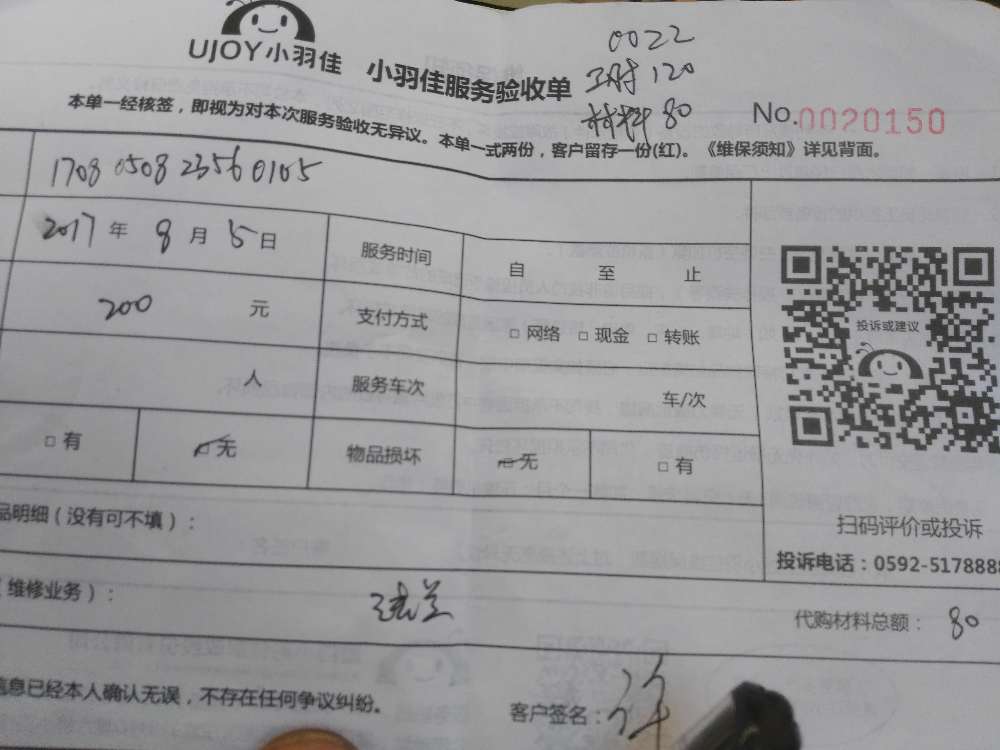 UJOY小羽佳 小羽佳服务验收单
0022
工时120
材料80
No.0020150
本单一经核签，即视为对本次服务验收无异议。本单一式两份，客户留存一份(红)。《维保须知》详见背面。
1708 0508 2356 0105
2017年8月5日 服务时间 自 至 止
200 元 支付方式 □网络 □现金 □转账
人 服务车次 车/次
□有 □无 物品损坏 □无 □有
投诉或建议
扫码评价或投诉
投诉电话：0592-5178888
品明细（没有可不填）：
（维修业务）：
代购材料总额： 80
信息已经本人确认无误，不存在任何争议纠纷。
客户签名：